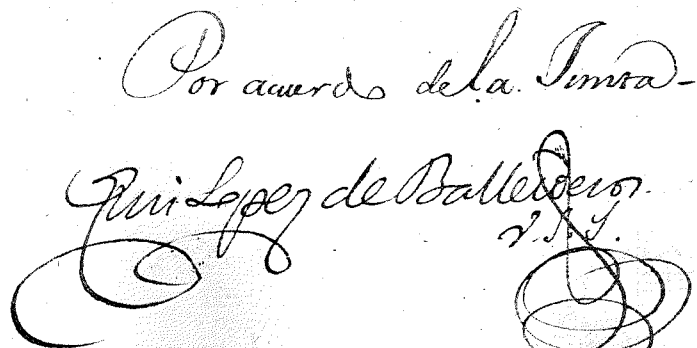 Por acuerdo de la Junta-
Luis Lopez de Ballesteros.
V. S. S.